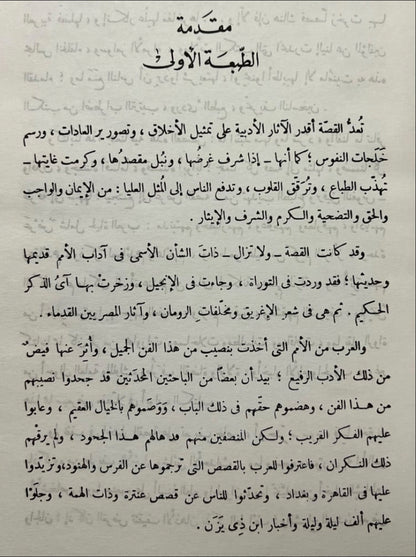 مقدمة
الطبعة الأولى
تُعدّ القصّة أقدر الآثار الأدبية على تمثيل الأخلاق ، وتصوير العادات ، ورسم
خَلَجات النفوس ؛ كما أنها – إذا شرف غرضُها ، ونُبل مقصدُها ، وكرمت غايتها –
تُهذّب الطباع ، وتُرقّق القلوب ، وتدفع الناس إلى المُثل العليا : من الإيمان والواجب
والحق والتضحية والكرم والشرف والإيثار .
وقد كانت القصة – ولا تزال – ذاتَ الشأن الأسمى فى آداب الأمم قديمها
وحديثها ؛ فقد وردت فى التوراة ، وجاءت فى الإنجيل ، وزخرتْ بها آىُ الذكر
الحكيم . ثم هى فى شعر الإغريق ومخلّفاتِ الرومان ، وآثار المصريين القدماء .
والعرب من الأمم التى أخذت بنصيب من هذا الفن الجميل ، وأُثِرَ عنها فيضٌ
من ذلك الأدب الرفيع ؛ بيد أن بعضًا من الباحثين المحدَثين قد جحدوا نصيبهم
من هذا الفن ، وهضموهم حقّهم فى ذلك الباب ، ووَصَموهم بالخيال العقيم ، وعابوا
عليهم الفكر القريب ؛ ولكن المنصفين منهم قد هالهم هذا الجحود ، ولم يرقْهم
ذلك النكران ، فاعترفوا للعرب بالقصص التى ترجموها عن الفرس والهنود، وتزيّدوا
عليها فى القاهرة وبغداد ، وتحدّثوا للناس عن قصص عنترة وذات الهمة ، وجلَوْا
عليهم ألف ليلة وليلة وأخبار ابن ذِى يَزَن .